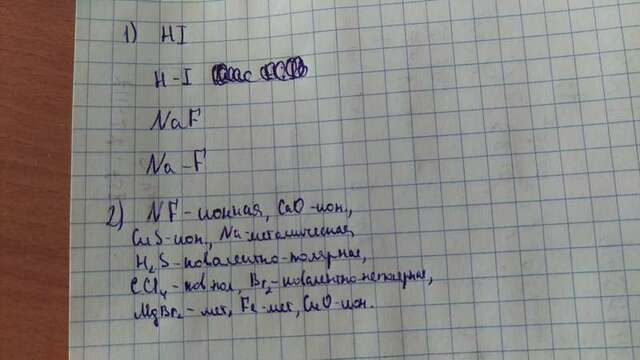 1) HI
H-I
NaF
Na-F
2) NF-ионная, CaO-ион.,
CuS-ион., Na-металическая,
H₂S-ковалентно-полярная,
CCl₄-ков пол, Br₂-ковалентно-неполярная,
MgBr₂-мет, Fe-мет, CuO-ион.